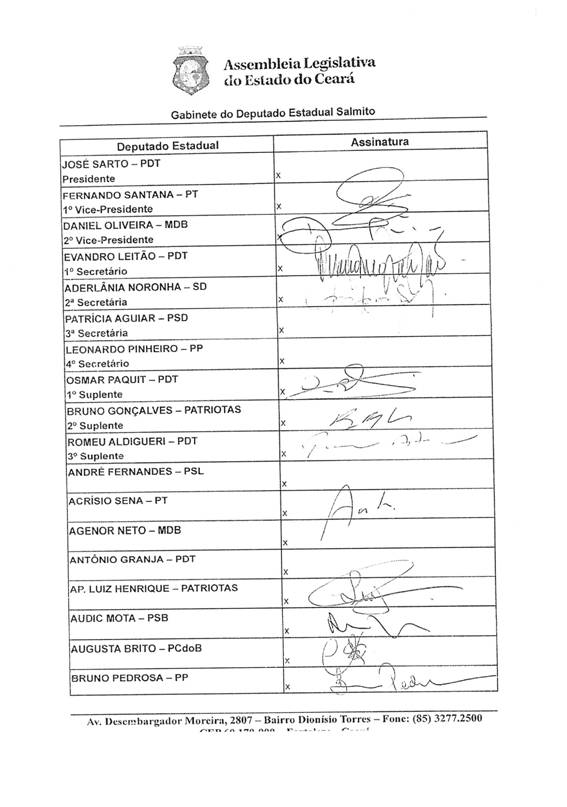 Assembleia Legislativa
do Estado do Ceará
Gabinete do Deputado Estadual Salmito
Deputado Estadual Assinatura
JOSÉ SARTO – PDT
Presidente x
FERNANDO SANTANA – PT
1º Vice-Presidente x
DANIEL OLIVEIRA – MDB
2º Vice-Presidente x
EVANDRO LEITÃO – PDT
1º Secretário x
ADERLÂNIA NORONHA – SD
2ª Secretária x
PATRÍCIA AGUIAR – PSD
3ª Secretária x
LEONARDO PINHEIRO – PP
4º Secretário x
OSMAR PAQUIT – PDT
1º Suplente x
BRUNO GONÇALVES – PATRIOTAS
2º Suplente x
ROMEU ALDIGUERI – PDT
3º Suplente x
ANDRÉ FERNANDES – PSL
x
ACRÍSIO SENA – PT
x
AGENOR NETO – MDB
x
ANTÔNIO GRANJA – PDT
x
AP. LUIZ HENRIQUE – PATRIOTAS
x
AUDIC MOTA – PSB
x
AUGUSTA BRITO – PCdoB
x
BRUNO PEDROSA – PP
x
Av. Desembargador Moreira, 2807 – Bairro Dionísio Torres – Fone: (85) 3277.2500